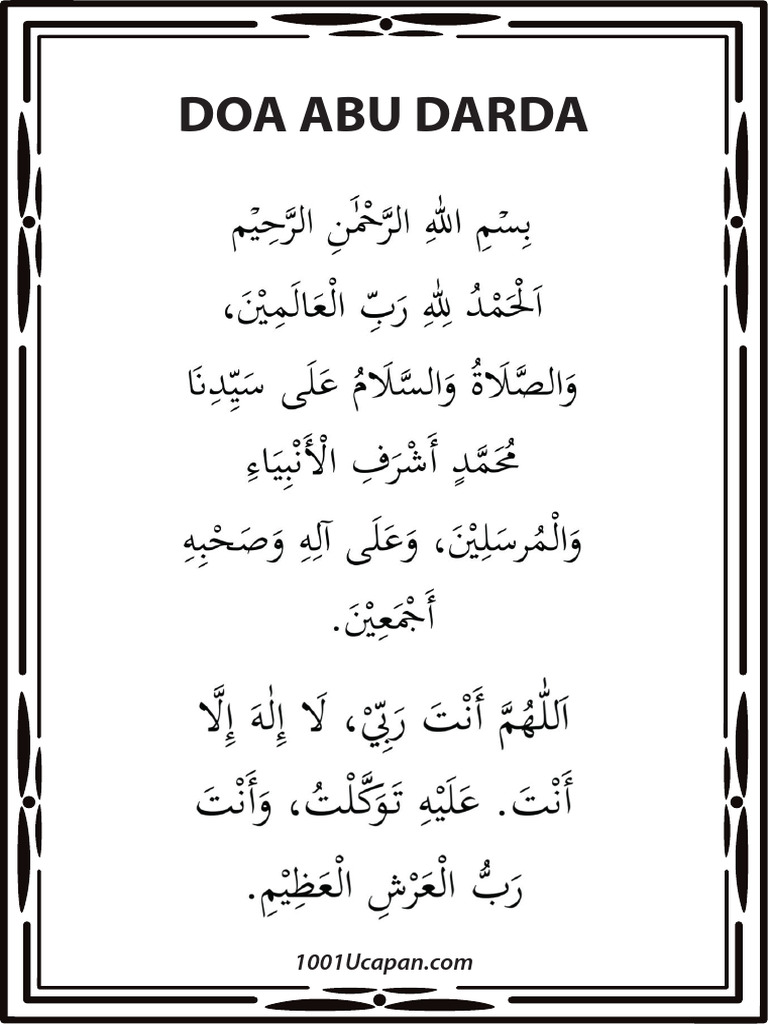 DOA ABU DARDA
بِسْمِ اللهِ الرَّحْمَٰنِ الرَّحِيْم
اَلْحَمْدُ لِلهِ رَبِّ الْعَالَمِيْنَ،
وَالصَّلَاةُ وَالسَّلَامُ عَلَى سَيِّدِنَا
مُحَمَّدٍ أَشْرَفِ الْأَنْبِيَاءِ
وَالْمُرسَلِيْنَ، وَعَلَى آلِهِ وَصَحْبِهِ
أَجْمَعِيْنَ.
اَللّٰهُمَّ أَنْتَ رَبِّيْ، لَا إِلٰهَ إِلَّا
أَنْتَ. عَلَيْهِ تَوَكَّلْتُ، وَأَنْتَ
رَبُّ الْعَرْشِ الْعَظِيْمِ.
1001Ucapan.com